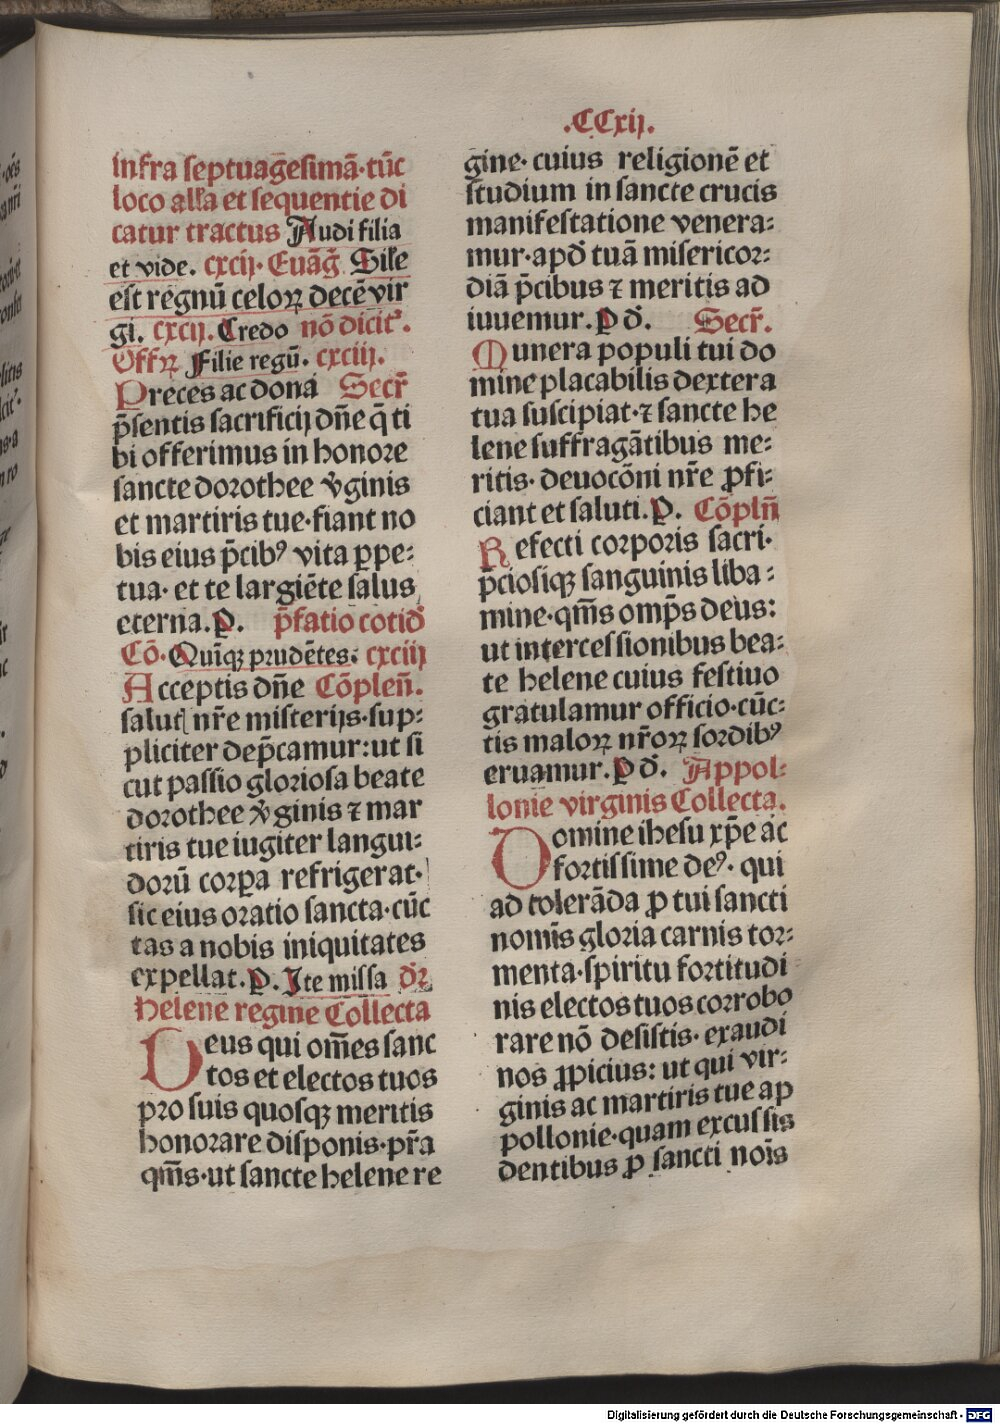 .CCxij.
infra septuagēsimā·tūc
loco alľa et sequentie di
catur tractus Audi filia
et vide. cxcij· Euāḡ Siľe
est regnū celoꝝ decē vir
gi. cxcij. Credo nō dicit᷑.
Offꝝ Filie regū. cxciij.
Preces ac dona Secr̄
p̄sentis sacrificij dn̄e q̄ ti
bi offerimus in honore
sancte dorothee v̄ginis
et martiris tue·fiant no
bis eius p̄cibꝰ vita ꝑpe⸗
tua· et te largiēte salus
eterna.P. p̄fatio cotid̄
Cō·Quīqꝫ prudētes: cxciij
Acceptis dn̄e Cōpleñ.
salutꝭ nr̄e misterijs·sup⸗
pliciter dep̄camur:ut si
cut passio gloriosa beate
dorothee v̄ginis ⁊ mar
tiris tue iugiter langui⸗
dorū corꝑa refrigerat·
sic eius oratio sancta·cūc
tas a nobis iniquitates
expellat.P. Ite missa dꝛ̄
Helene regine Collecta
Deus qui om̄es sanc
tos et electos tuos
pro suis quosqꝫ meritis
honorare disponis·pr̄a
qm̄s·ut sancte helene re
gine· cuius religionē et
studium in sancte crucis
manifestatione venera⸗
mur·apd̄ tuā misericor⸗
diā p̄cibus ⁊ meritis ad
iuuemur.P d̄. Secr̄.
Munera populi tui do
mine placabilis dextera
tua suscipiat·⁊ sancte he
lene suffragātibus me⸗
ritis· deuocōni nr̄e ꝓfi⸗
ciant et saluti.P. Cōplñ
Refecti corporis sacri·
p̄ciosiqꝫ sanguinis liba⸗
mine·qm̄s omp̄s deus:
ut intercessionibus bea⸗
te helene cuius festiuo
gratulamur officio·cūc⸗
tis maloꝝ nr̄oꝝ sordibꝰ
eruamur.P d̄. Appol⸗
lonie virginis Collecta.
Domine ihesu xp̄e ac
fortissime deꝰ· qui
ad tolerāda ꝓ tui sancti
nomīs gloria carnis tor⸗
menta·spiritu fortitudi
nis electos tuos corrobo
rare nō desistis· exaudi
nos ꝓpicius: ut qui vir⸗
ginis ac martiris tue ap
pollonie·quam excussis
dentibus ꝓ sancti noīs
Digitalisierung gefördert durch die Deutsche Forschungsgemeinschaft - DFG